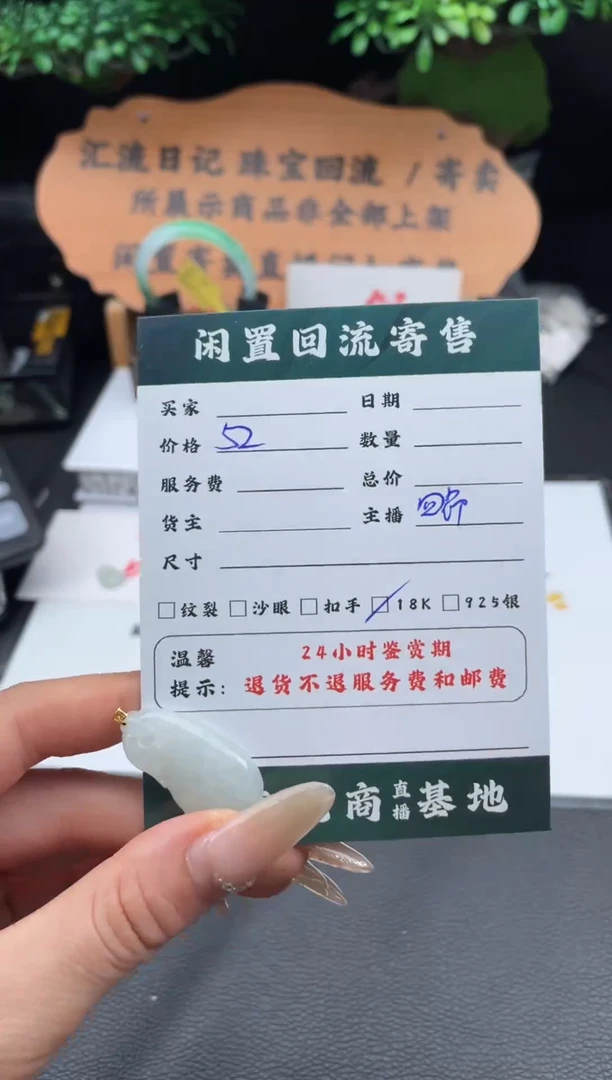 汇流日记 珠宝回流 / 寄卖
所展示商品非全部上架
闲置回流寄售
买家 日期
价格 52 数量
服务费 总价
货主 主播
尺寸
纹裂 沙眼 扣手 18K 925银
温馨提示: 24小时鉴赏期
退货不退服务费和邮费
商直播基地